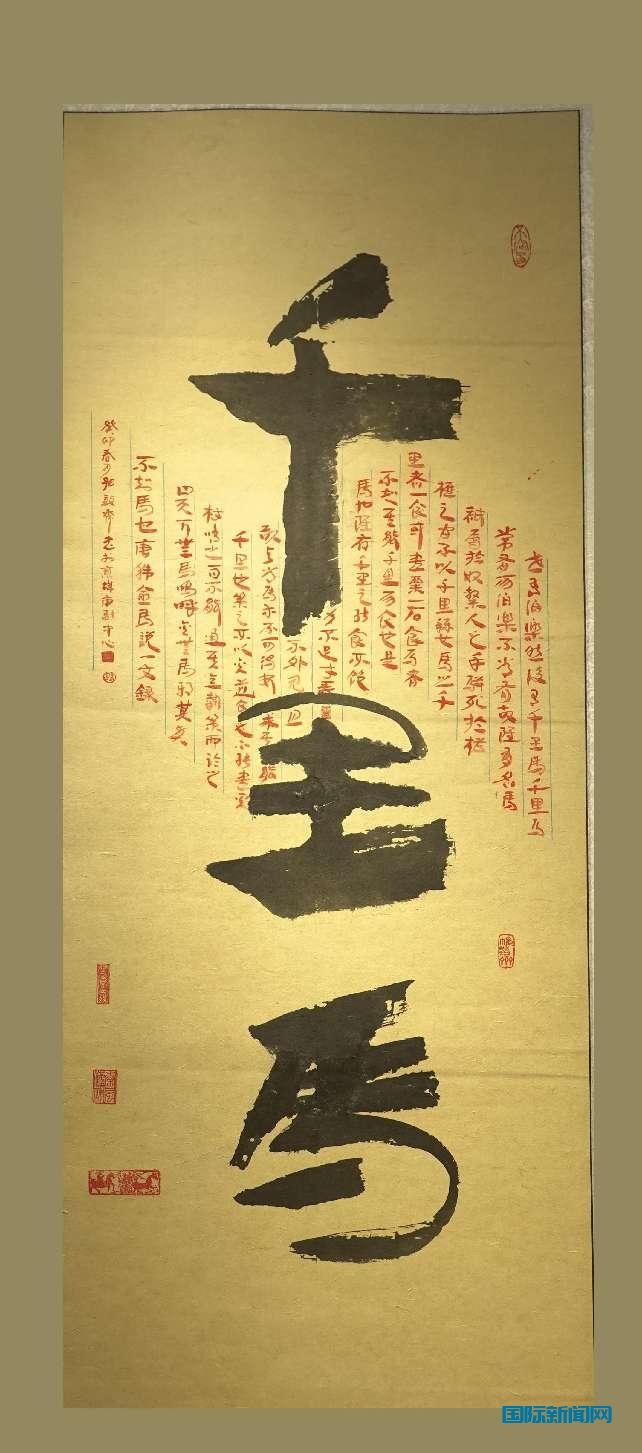 千里馬
世有伯樂然後有千里馬千里馬
常有而伯樂不常有故雖有名馬
辱於奴隸人之手駢死於槽
櫪之不以千里稱也馬之千
里者一食可盡粟一石食馬者
不知其能千里而食也是
馬也雖有千里之能食不饱
力不足才美
不外見且
欲與常馬不可得安求其能
千里也策之不以其道食之不能盡其
材鳴之而不能通其意執策而臨之
曰天下無馬嗚呼其無馬邪其真
不知馬也唐韩愈馬說一文錄
癸卯春月
国际新闻网